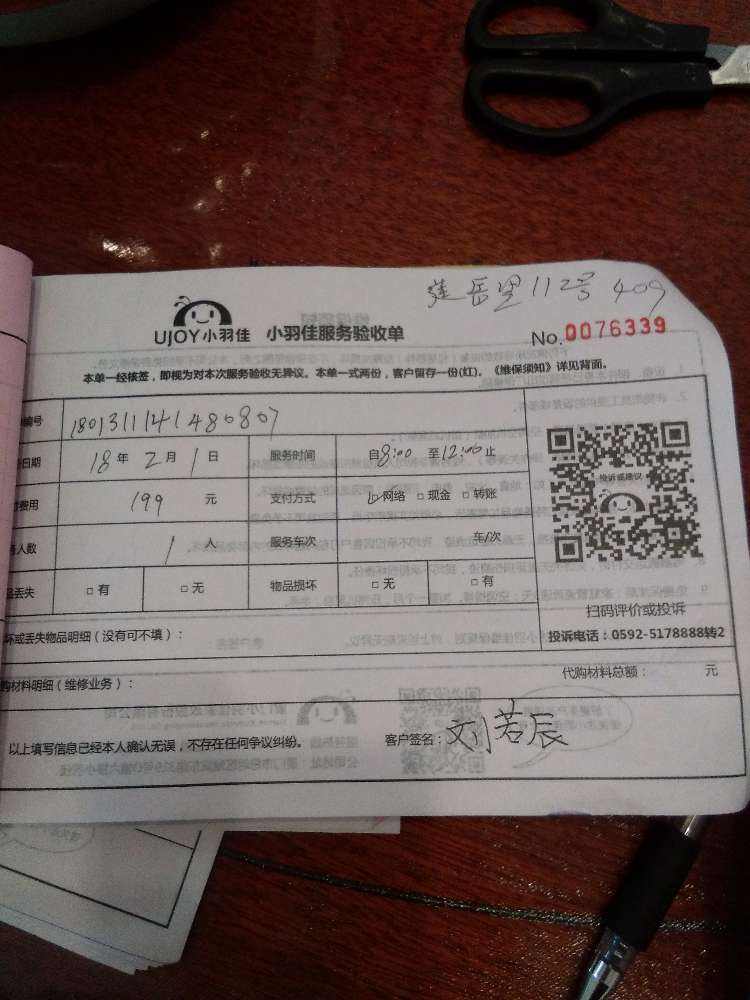 莲岳里112号409
UJOY小羽佳 小羽佳服务验收单
No.0076339
本单一经核签，即视为对本次服务验收无异议。本单一式两份，客户留存一份(红)。《维保须知》详见背面。
编号 1801311141480807
日期 18年2月1日 服务时间 自8:00至12:00止
费用 199 元 支付方式 ☑网络 □现金 □转账
人数 1 人 服务车次 车/次
丢失 □有 □无 物品损坏 □无 □有
投诉或建议
扫码评价或投诉
投诉电话：0592-5178888转2
坏或丢失物品明细（没有可不填）：
购材料明细（维修业务）： 代购材料总额： 元
以上填写信息已经本人确认无误，不存在任何争议纠纷。 客户签名：刘若辰